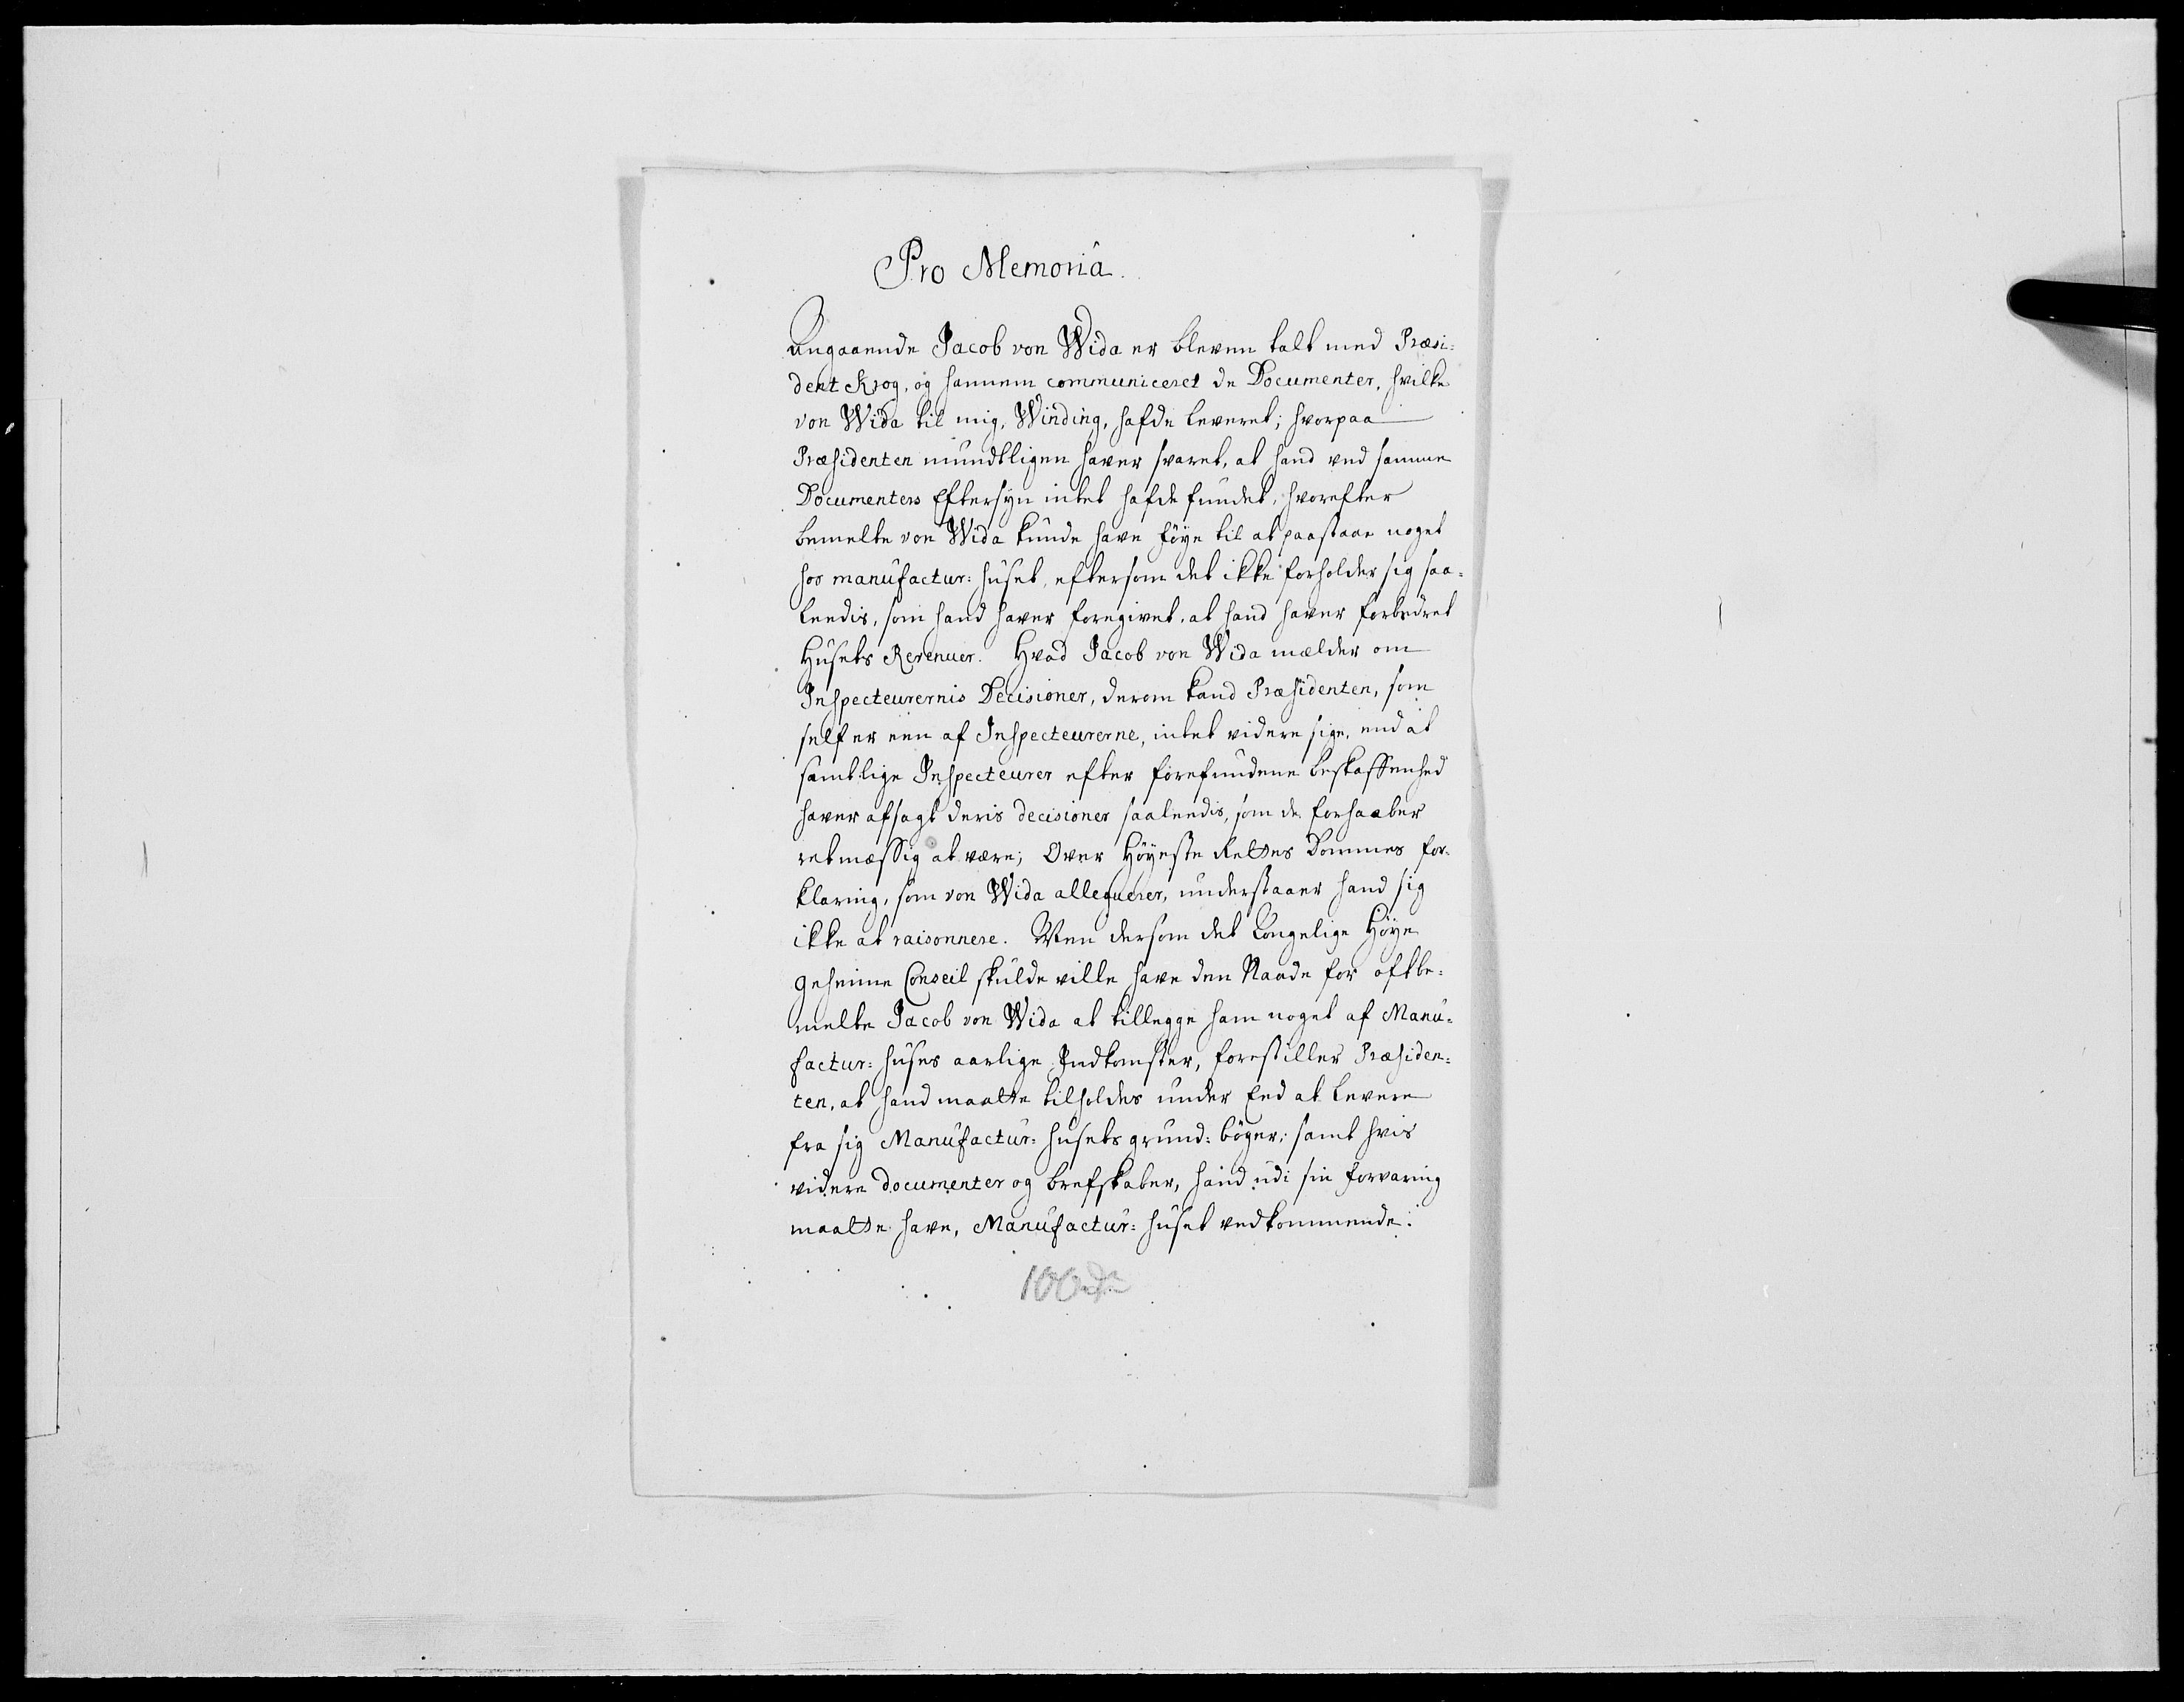 Pro Memoriâ.
Angaaende Jacob von Wida er bleven talt med Præsi=
dent Krog, og hannem communiceret de Documenter, hvilke
von Wida til mig, Winding, hafde leveret; hvorpaa
Præsidenten mundtligen haver svaret, at hand ved samme
Documenters Eftersyn intet hafde fundet, hvorefter
bemelte von Wida kunde have føye til at paastaae noget
hos manufactur: huset, eftersom det ikke forholder sig saa=
leedis, som hand haver foregivet, at hand haver forbedret
Husets Revenuer. Hvad Jacob von Wida mælder om
Inspecteurernis Decisioner, derom kand Præsidenten, som
self er een af Inspecteurerne, intet videre sige, end at
samtlige Inspecteurer efter forefundene beskaffenhed
haver afsagt deris decisioner saaleedis, som de forhaaber
retmæssig at være; Over Høyeste Rettes Dommes for=
klaring, som von Wida alleguerer, understaaer hand sig
ikke at raisonnere. Men dersom det Kongelige Høye
geheime Conseil skulde ville have den Naade for oftbe=
melte Jacob von Wida at tillegge ham noget af Manu=
factur: huses aarlige Indkomster, forestiller Præsiden=
ten, at hand maatte tilholdes under Eed at levere
fra sig Manufactur: husets grund: bøger; samt hvis
videre documenter og brefskaber, hand udi sin forvaring
maatte have, Manufactur: huset vedkommende.
100